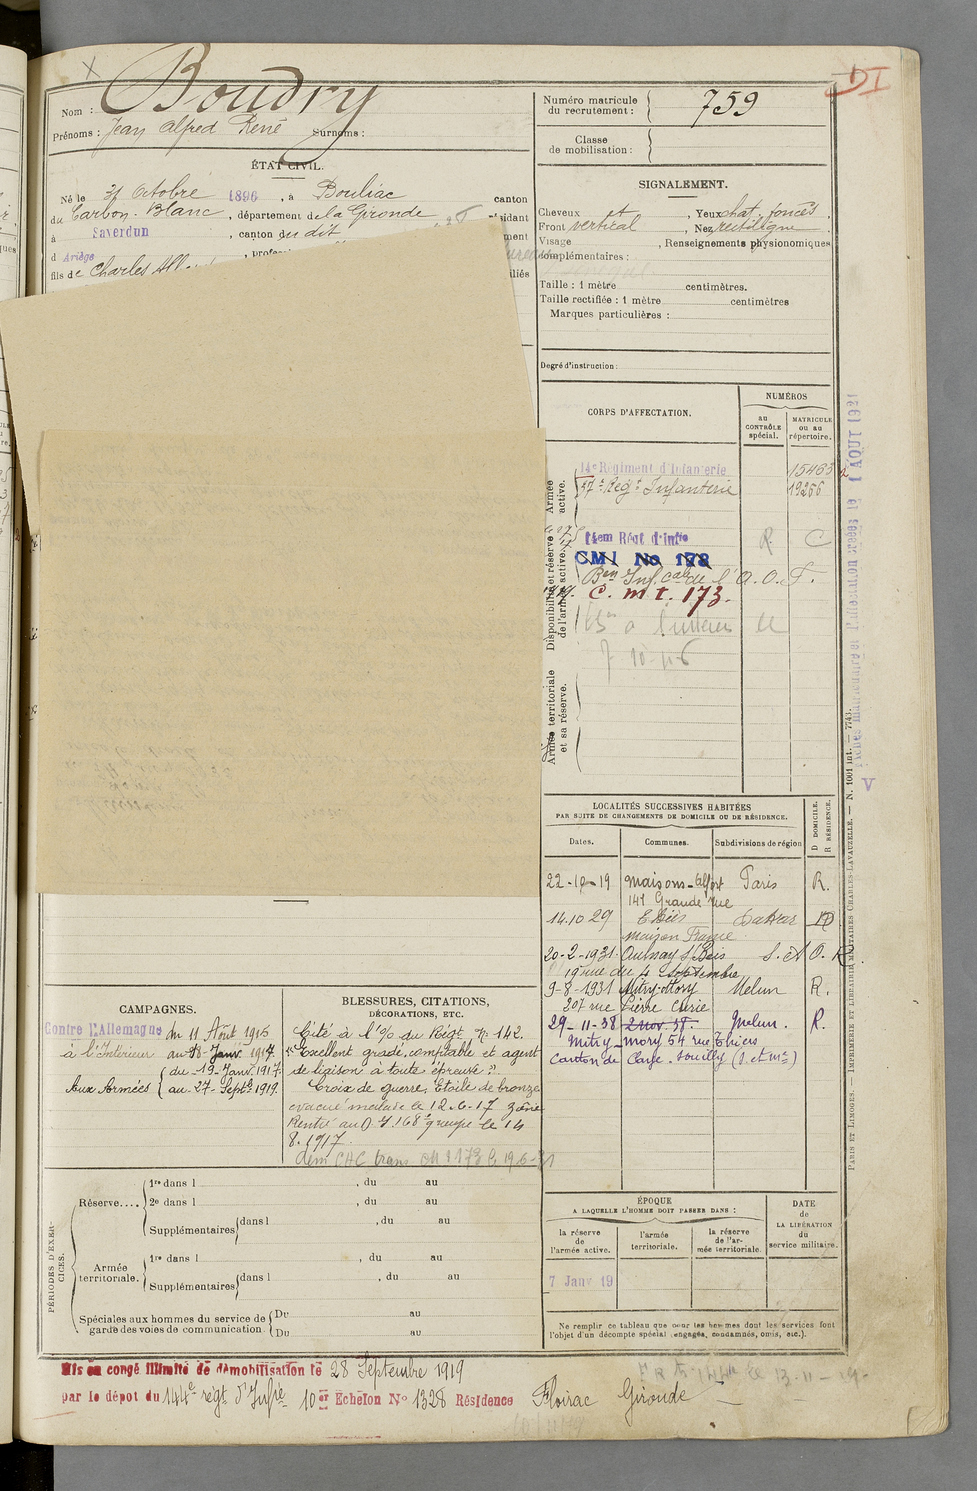 Boudry
Nom :
Prénoms : Jean Alfred René Surnoms :
ÉTAT CIVIL.
Né le 31 Octobre 1896, à Bouliac canton
du Carbon-Blanc, département de la Gironde résidant
à Saverdun, canton du dit
d Ariège, profes
fils de Charles Albe
Numéro matricule
du recrutement : 759
Classe
de mobilisation :
SIGNALEMENT.
Cheveux , Yeux foncés,
Front vertical , Nez rectiligne,
Visage , Renseignements physionomiques
complémentaires :
Taille : 1 mètre centimètres.
Taille rectifiée : 1 mètre centimètres
Marques particulières :
Degré d'instruction :
CORPS D'AFFECTATION.
NUMÉROS
au
CONTRÔLE
spécial.
MATRICULE
ou au
répertoire.
Armée
active.
14e Régiment d'Infanterie 15463
57e Régt Infanterie 19256
Disponibilité et réserve
de l'armée active.
14em Régt d'Inftie R C
CMI No 178
Bon Inf. cale de l'A.O.F.
C. m t. 173.
Armée territoriale
et sa réserve.
LOCALITÉS SUCCESSIVES HABITÉES
PAR SUITE DE CHANGEMENTS DE DOMICILE OU DE RÉSIDENCE.
Dates. Communes. Subdivisions de région
D DOMICILE.
R RÉSIDENCE.
22-10-19 Maisons-Alfort Paris R.
141 Grande Rue
14.10 29 Thiès Dakar
maison Prame
20-2-1931. Aulnay s/Bois S. et O. R
19 rue du 4 Septembre
9-8-1931 Mitry-Mory Melun R.
207 rue Pierre Curie
29-11-38 2 nov 38. Melun. R.
Mitry-Mory 54 rue Thiers
Canton de Claye-Souilly (S. et Mne)
CAMPAGNES.
Contre l'Allemagne du 11 Août 1916
à l'Intérieur au 18 Janv. 1917.
Aux Armées du 19 Janv. 1917.
au 27 Septe 1919.
BLESSURES, CITATIONS,
DÉCORATIONS, ETC.
Cité à l'O/ du Régt N° 142.
"Excellent gradé, comptable et agent
de liaison à toute épreuve".
Croix de guerre, Etoile de bronze
evacué malade le 12-6-17 zone
Rentré au D. 168e groupe le 14
8.1917.
PÉRIODES D'EXERCICES.
Réserve....
1re dans l , du au
2e dans l , du au
Supplémentaires dans l , du au
Armée
territoriale.
1re dans l , du au
Supplémentaires dans l , du au
Spéciales aux hommes du service de
garde des voies de communication
Du au
Du au
ÉPOQUE
A LAQUELLE L'HOMME DOIT PASSER DANS :
la réserve
de
l'armée active.
l'armée
territoriale.
la réserve
de l'ar-
mée territoriale.
DATE
de
LA LIBÉRATION
du
service militaire.
7 Janv 19
Ne remplir ce tableau que pour les hommes dont les services font
l'objet d'un décompte spécial (engagés, condamnés, omis, etc.).
Mis en congé illimité de démobilisation le 28 Septembre 1919
par le dépôt du 144e régt d'Infie 10er Echelon No 1328 Résidence Floirac Gironde
PARIS ET LIMOGES. — IMPRIMERIE ET LIBRAIRIE MILITAIRES CHARLES-LAVAUZELLE. — N. 1001 int. — 7743.
Fiches matriculaire et d'affectation créées le 1 AOUT 1921
V